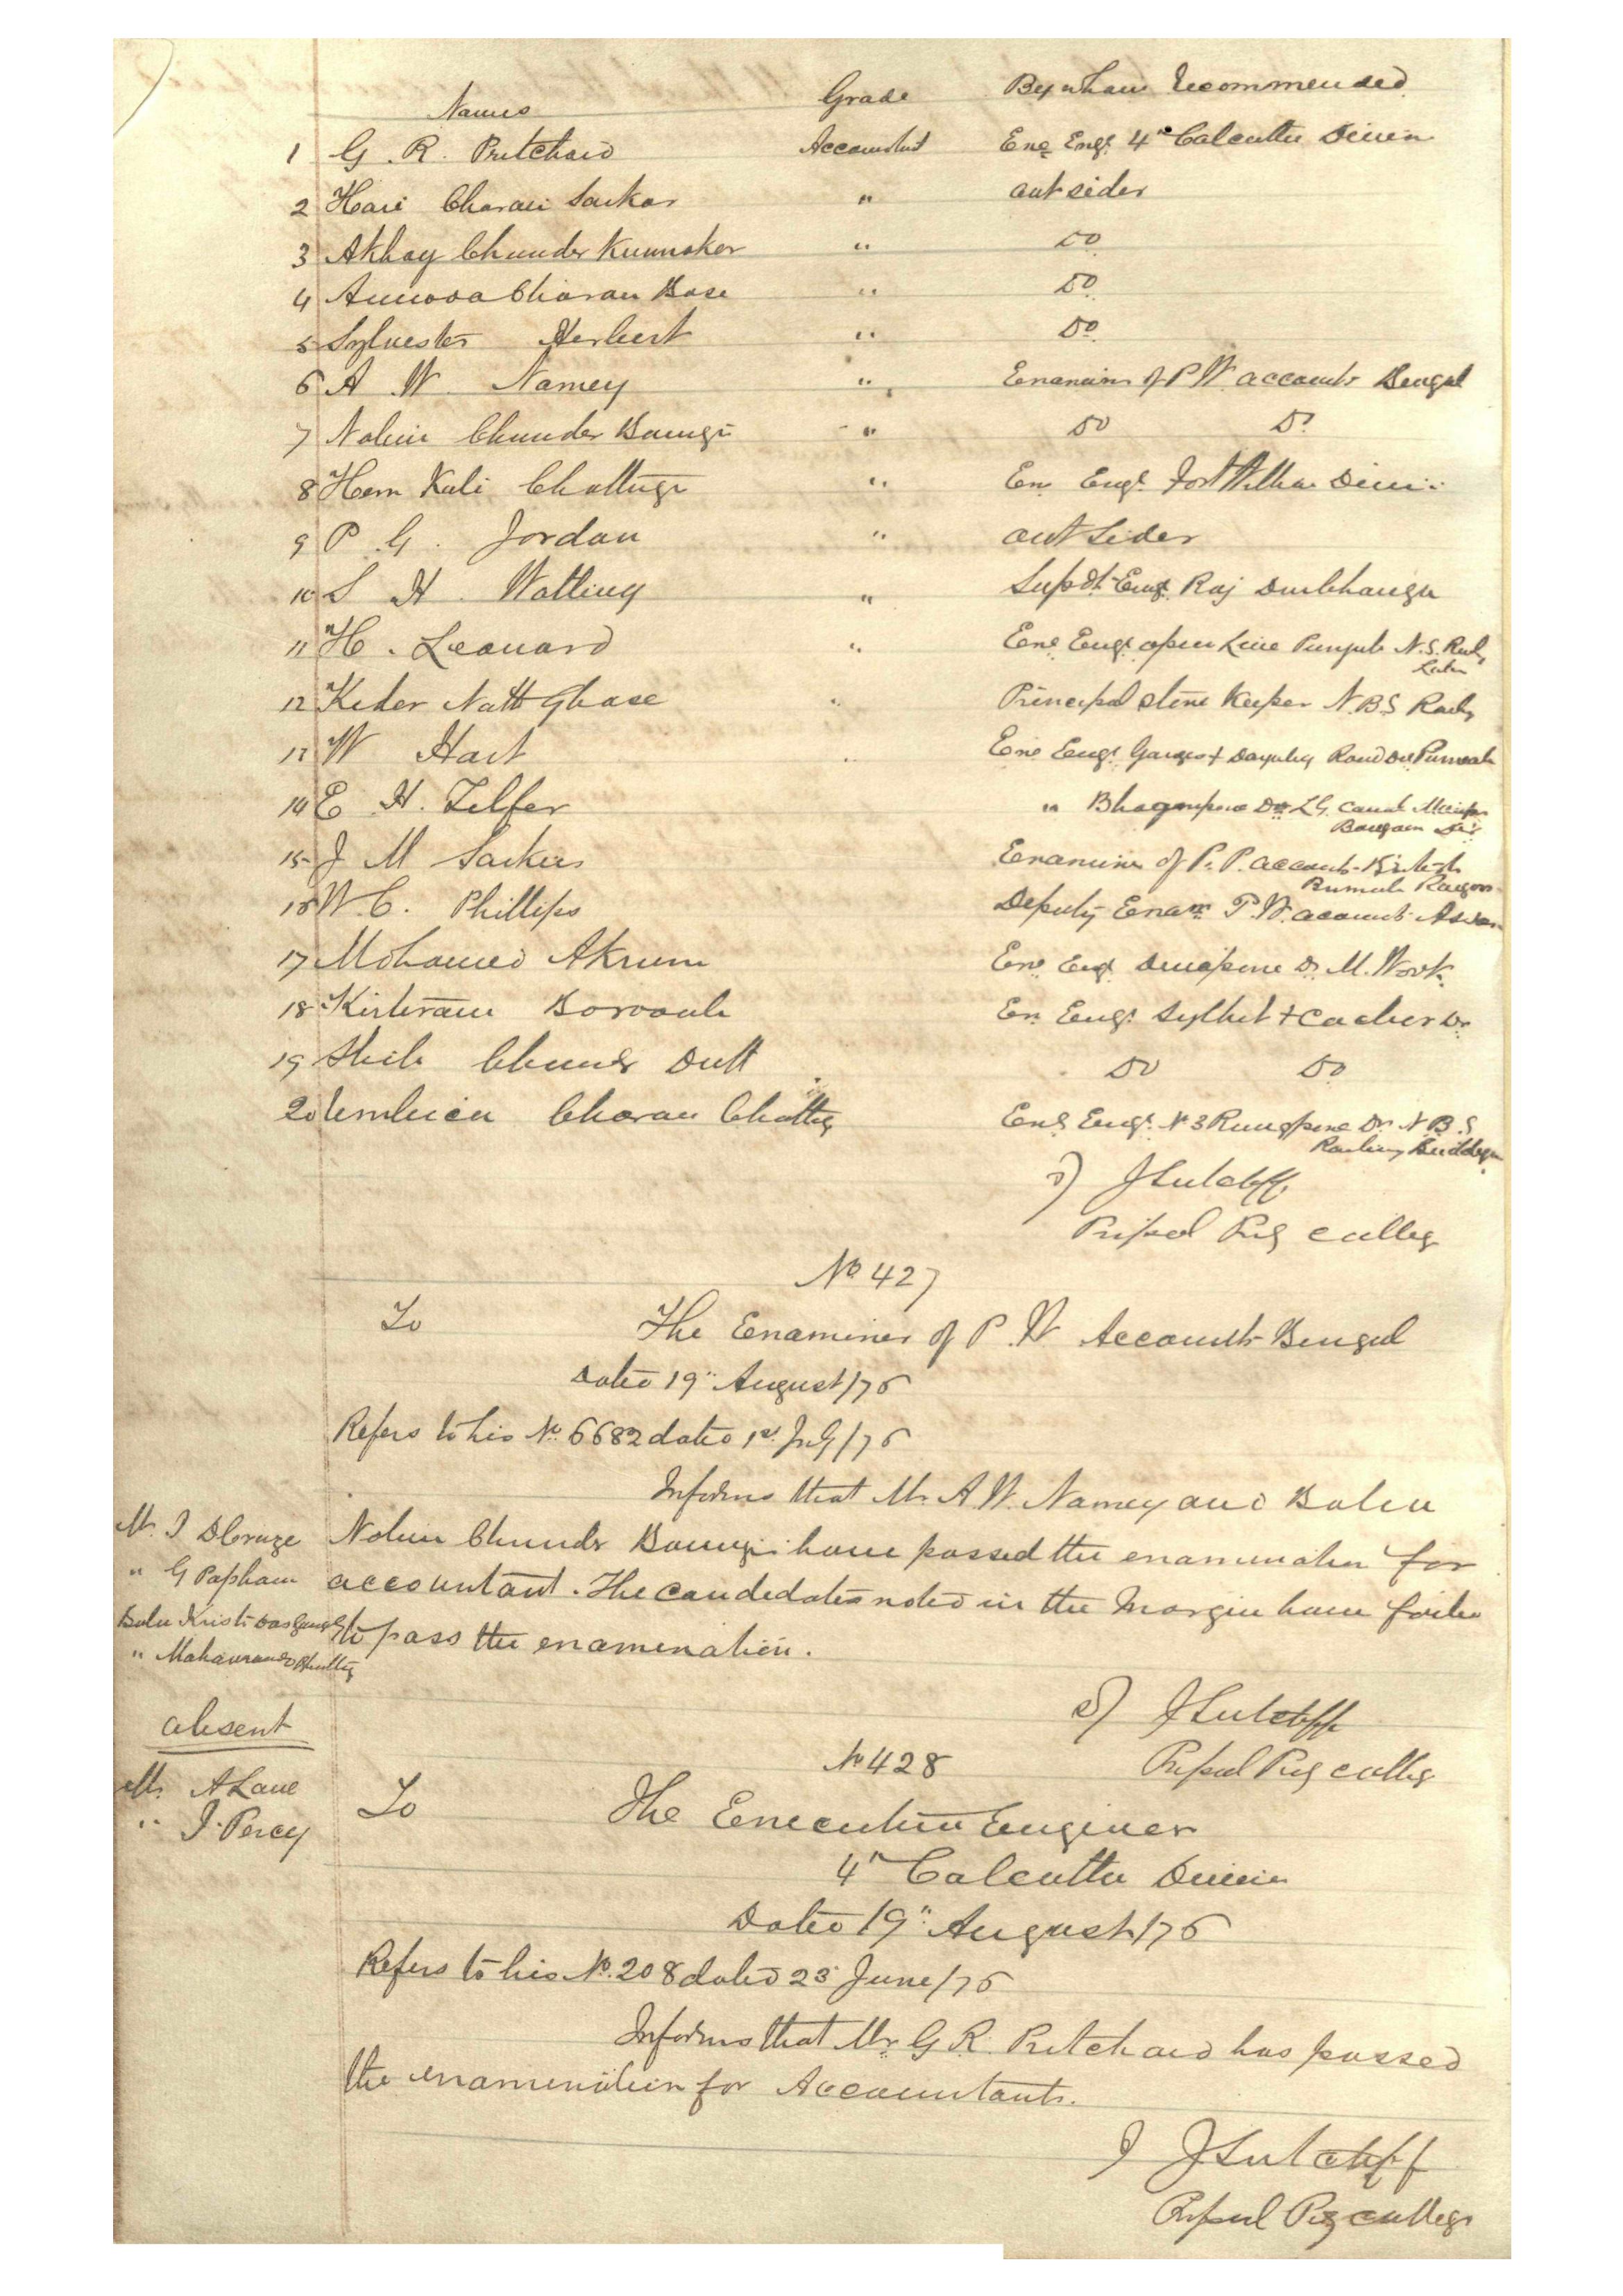 Names Grade By whom recommended
1 G. R. Pritchard Accountant Exe Engr 4th Calcutta Divin
2 Hari Charan Sarkar " outsider
3 Akhay Chunder Kurmoker " Do
4 Annoda Charan Bose " Do
5 Sylvester Herbert " Do
6 A W. Namey " Examiner of P W accounts Bengal
7 Nobin Chunder Banerji " Do Do
8 Hem Kali Chatterji " Exe Engr Fort William Divin
9 P. G. Jordan " outsider
10 S H. Watling " Supdt Engr Raj Durbhanga
11 H. Leonard " Exe Engr open Line Punjab N. S. Raily
12 Keder Nath Ghose " Principal store Keeper N. B S Raily
13 W Hart " Exe Engr Ganges & Road Dn Purneah
14 E H. Telfer " Dn L G. Canal
15 J M Sarkies Examiner of P. P. accounts British
Burmah Rangoon
16 W. C. Phillips Deputy Examr P. W. accounts Assam
17 Mohamed Akrum Exe Engr Dinapore Dn M. Work
18 Kirteram Borooah Ex Engr Sylhet & Cachar Dn
19 Shib Chunder Dutt Do Do
20 Umbica Charan Chatterji Exe Engr N 3 Rungpore Dn N. B. S
Railway
s) J Sutcliffe
Pripal Prig College
No 427
To The Examiner of P. W Accounts Bengal
Dated 19" August/76
Refers to his No 6682 dated 1st July/76
Informs that Mr A W. Namey and Babu
Nobin Chunder Banerji have passed the examination for
accountant. The candedates noted in the margin have failed
to pass the examenation.
Mr. J DCruze
" G Papham
Babu Kristo Das
" Mahanund Chatterji
absent
Mr. A Lane
" J. Percy
s) J Sutcliffe
Pripal Prig College
No 428
To The Executive Engineer
4th Calcutta Divin
Dated 19" August/76
Refers to his No. 208 dated 23 June/76
Informs that Mr. G R. Pritchard has passed
the examenation for Accountants.
J Sutcliff
Pripal Prig College